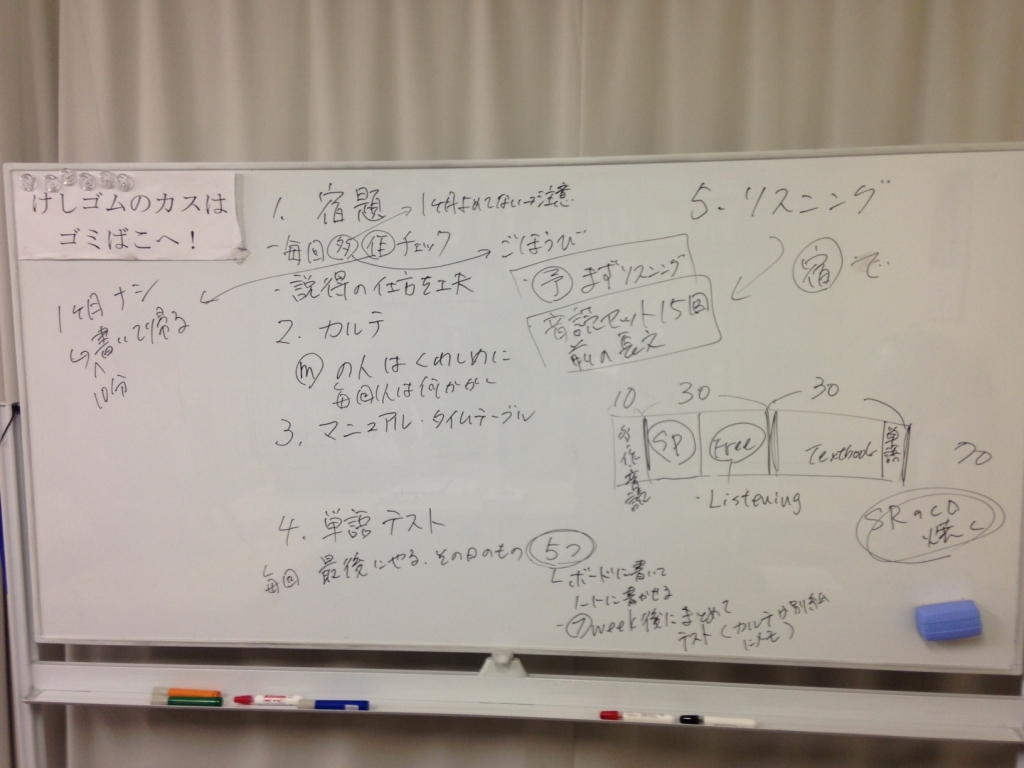 けしゴムのカスは
ゴミばこへ！
1. 宿題
1ヶ月 よめてない→注意
・毎回 チェック
ごほうび
・説得の仕方を工夫
1ヶ月 ナシ
書いて帰る
10分
2. カルテ
m の人は くわしめに
毎回1人は何か
3. マニュアル・タイムテーブル
4. 単語テスト
毎回 最後にやる、その日のもの 5つ
ボードに書いて
ノートに書かせる
week後にまとめて
テスト(カルテか別紙
にメモ)
5. リスニング
宿 で
・予 まずリスニング
音読セット15回
裏文
10 30 30
音読 SP Free Textbook 単語
70
・Listening
SRのCD
焼く